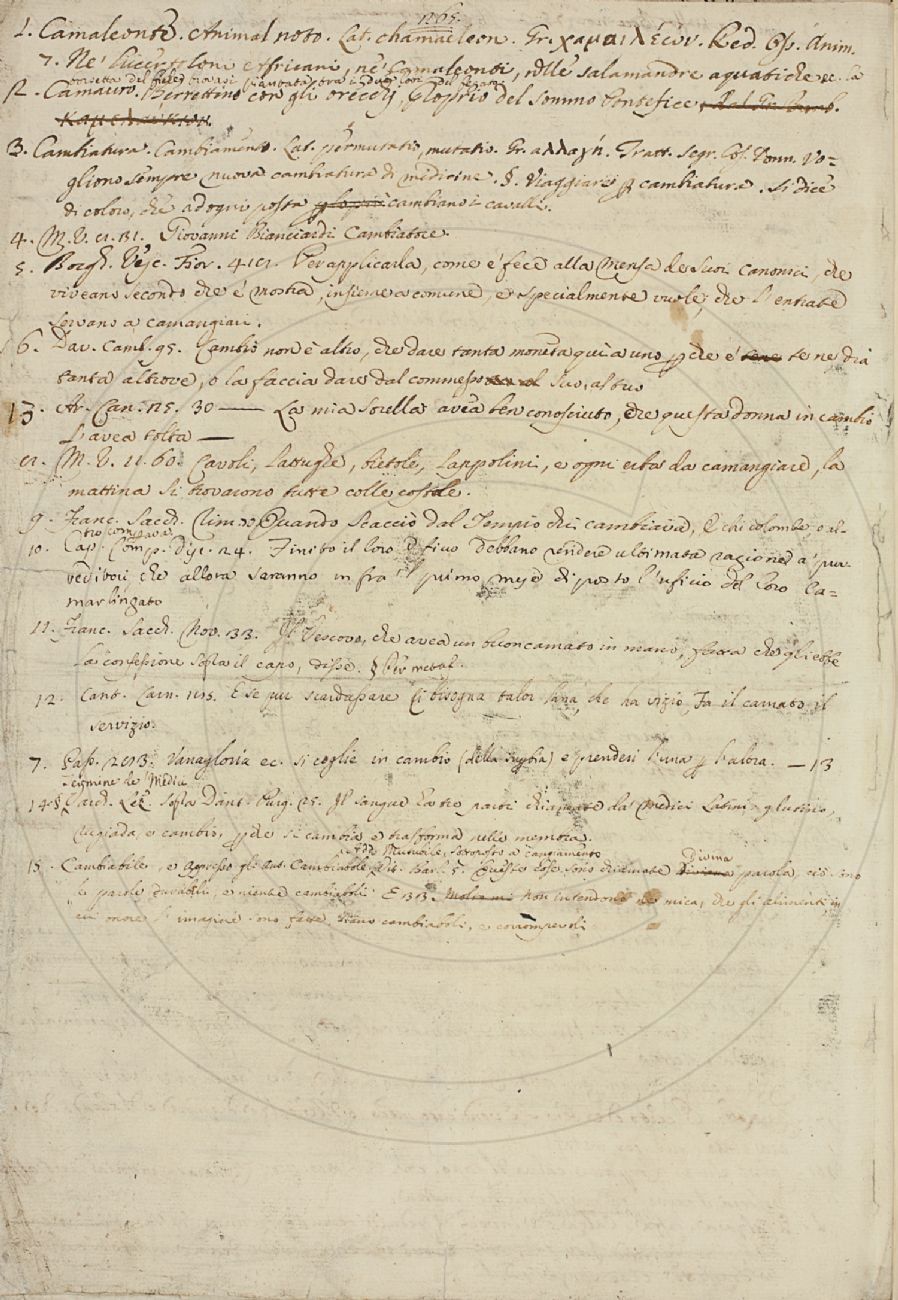 1265.
1. Camaleonte. Animal noto. Lat. chamaeleon. Gr. χαμαιλέων. Red. Op. Anim.
7. Ne' lucertoloni affricani, ne' Camaleonti, nelle salamandre aquatiche ec. la
2. Camauro. Berrettino con gli orecchj, proprio del sommo Pontefice
3. Cambiatura. Cambiamento. Lat. permutatio, mutatio. Gr. αλλαγή. Tratt. segr. cos. donn. Vo=
gliono sempre nuova cambiatura di medicine. §. Viaggiare p cambiatura. Si dice
di coloro, che ad ogni posta cambiano i cavalli.
4. M. V. 11. 31. Giovanni Bianciardi Cambiatore.
5. Borgh. Vesc. Fior. Per applicarla, come e' fece alla Mensa de suoi canonici, che
viveano secondo che e' mostra, insieme a comune, e specialmente vuole, che l'entrate
servano a camangiari.
6. Dav. Camb. 95. Cambio non è altro, che dare tanta moneta quì a uno pche e' te ne dia
tanta altrove, o la faccia dare dal commesso suo, al tuo
13. Ar. Cam. 25. 30 — La mia sorella avea ben conosciuto, che questa donna in cambio
l'avea tolta —
M. V. 11. 60. Cavoli, lattughe, bietole, lappolini, e ogni erba da camangiare, la
mattina si trovarono tutte colle costole.
9. Franc. Sacch. Quando scacciò dal Tempio chi cambiava, e chi colombe, o al-
tro comperava
10. Cap. Comp. disc. 24. Finito il loro ufficio debbano rendere ultimata ragione a' prov-
veditori, che allora saranno in fra 'l primo mese diposto l'uficio del loro Ca=
marlingato
11. Franc. Sacch. Nov. 133. Il Vescovo, che avea un buon camato in mano, fatta che gli ebbe
la confessione sopra il capo, disse. § Per metaf.
12. Cant. Carn. E se pur scardassare Ci bisogna talor lana, che ha vizio, Fa il camato il
servizio.
7. Pass. Vanagloria ec. si coglie in cambio (della superbia) e prendesi l'una p l'altra. — 13
Termine de' Medici
14. § Vard. Lez. sopra Dant. Purg. 25. Il sangue ha tre parti chiamate da' Medici Latini glutino,
rugiada, e cambio, pche si cambia e trasforma nelle membra.
Add. Mutabile, sottoposto a cangiamento
15. Cambiabile, e appresso gli ant. Cambiabole. Vit. Barl. 5. Queste cose sono chiamate Divina parola, cio sono
le parole durabili, e niente cambiabili. E 33. Non intendono mica, che gli alimenti in
cui onore l'imagine sono fatte, siano cambiabili, e corrompevoli